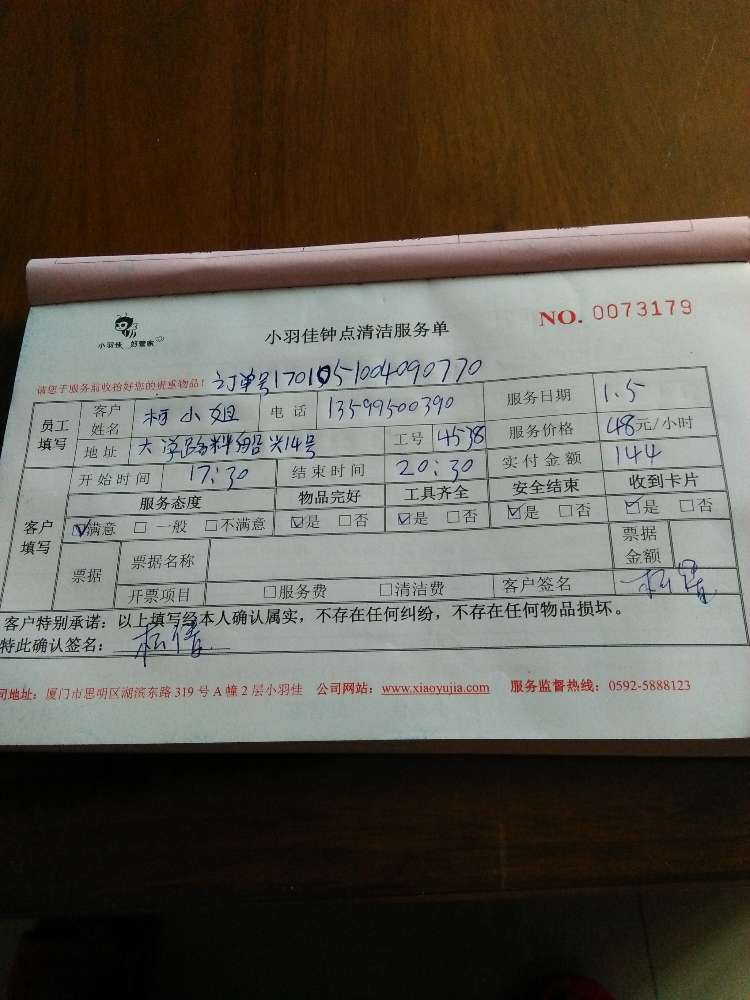 小羽佳 好管家
小羽佳钟点清洁服务单
NO. 0073179
请您于服务前收拾好您的贵重物品！ 订单号1701051004090770
员工填写 客户姓名 柯小姐 电话 13599500390 服务日期 1.5
地址 大学路料船头14号 工号 4538 服务价格 48元/小时
客户填写 开始时间 17:30 结束时间 20:30 实付金额 144
服务态度 物品完好 工具齐全 安全结束 收到卡片
☑满意 □一般 □不满意 ☑是 □否 ☑是 □否 ☑是 □否 ☑是 □否
票据 票据名称 票据金额
开票项目 □服务费 □清洁费 客户签名
客户特别承诺：以上填写经本人确认属实，不存在任何纠纷，不存在任何物品损坏。
特此确认签名：
司地址：厦门市思明区湖滨东路 319 号 A 幢 2 层小羽佳 公司网站：www.xiaoyujia.com 服务监督热线：0592-5888123